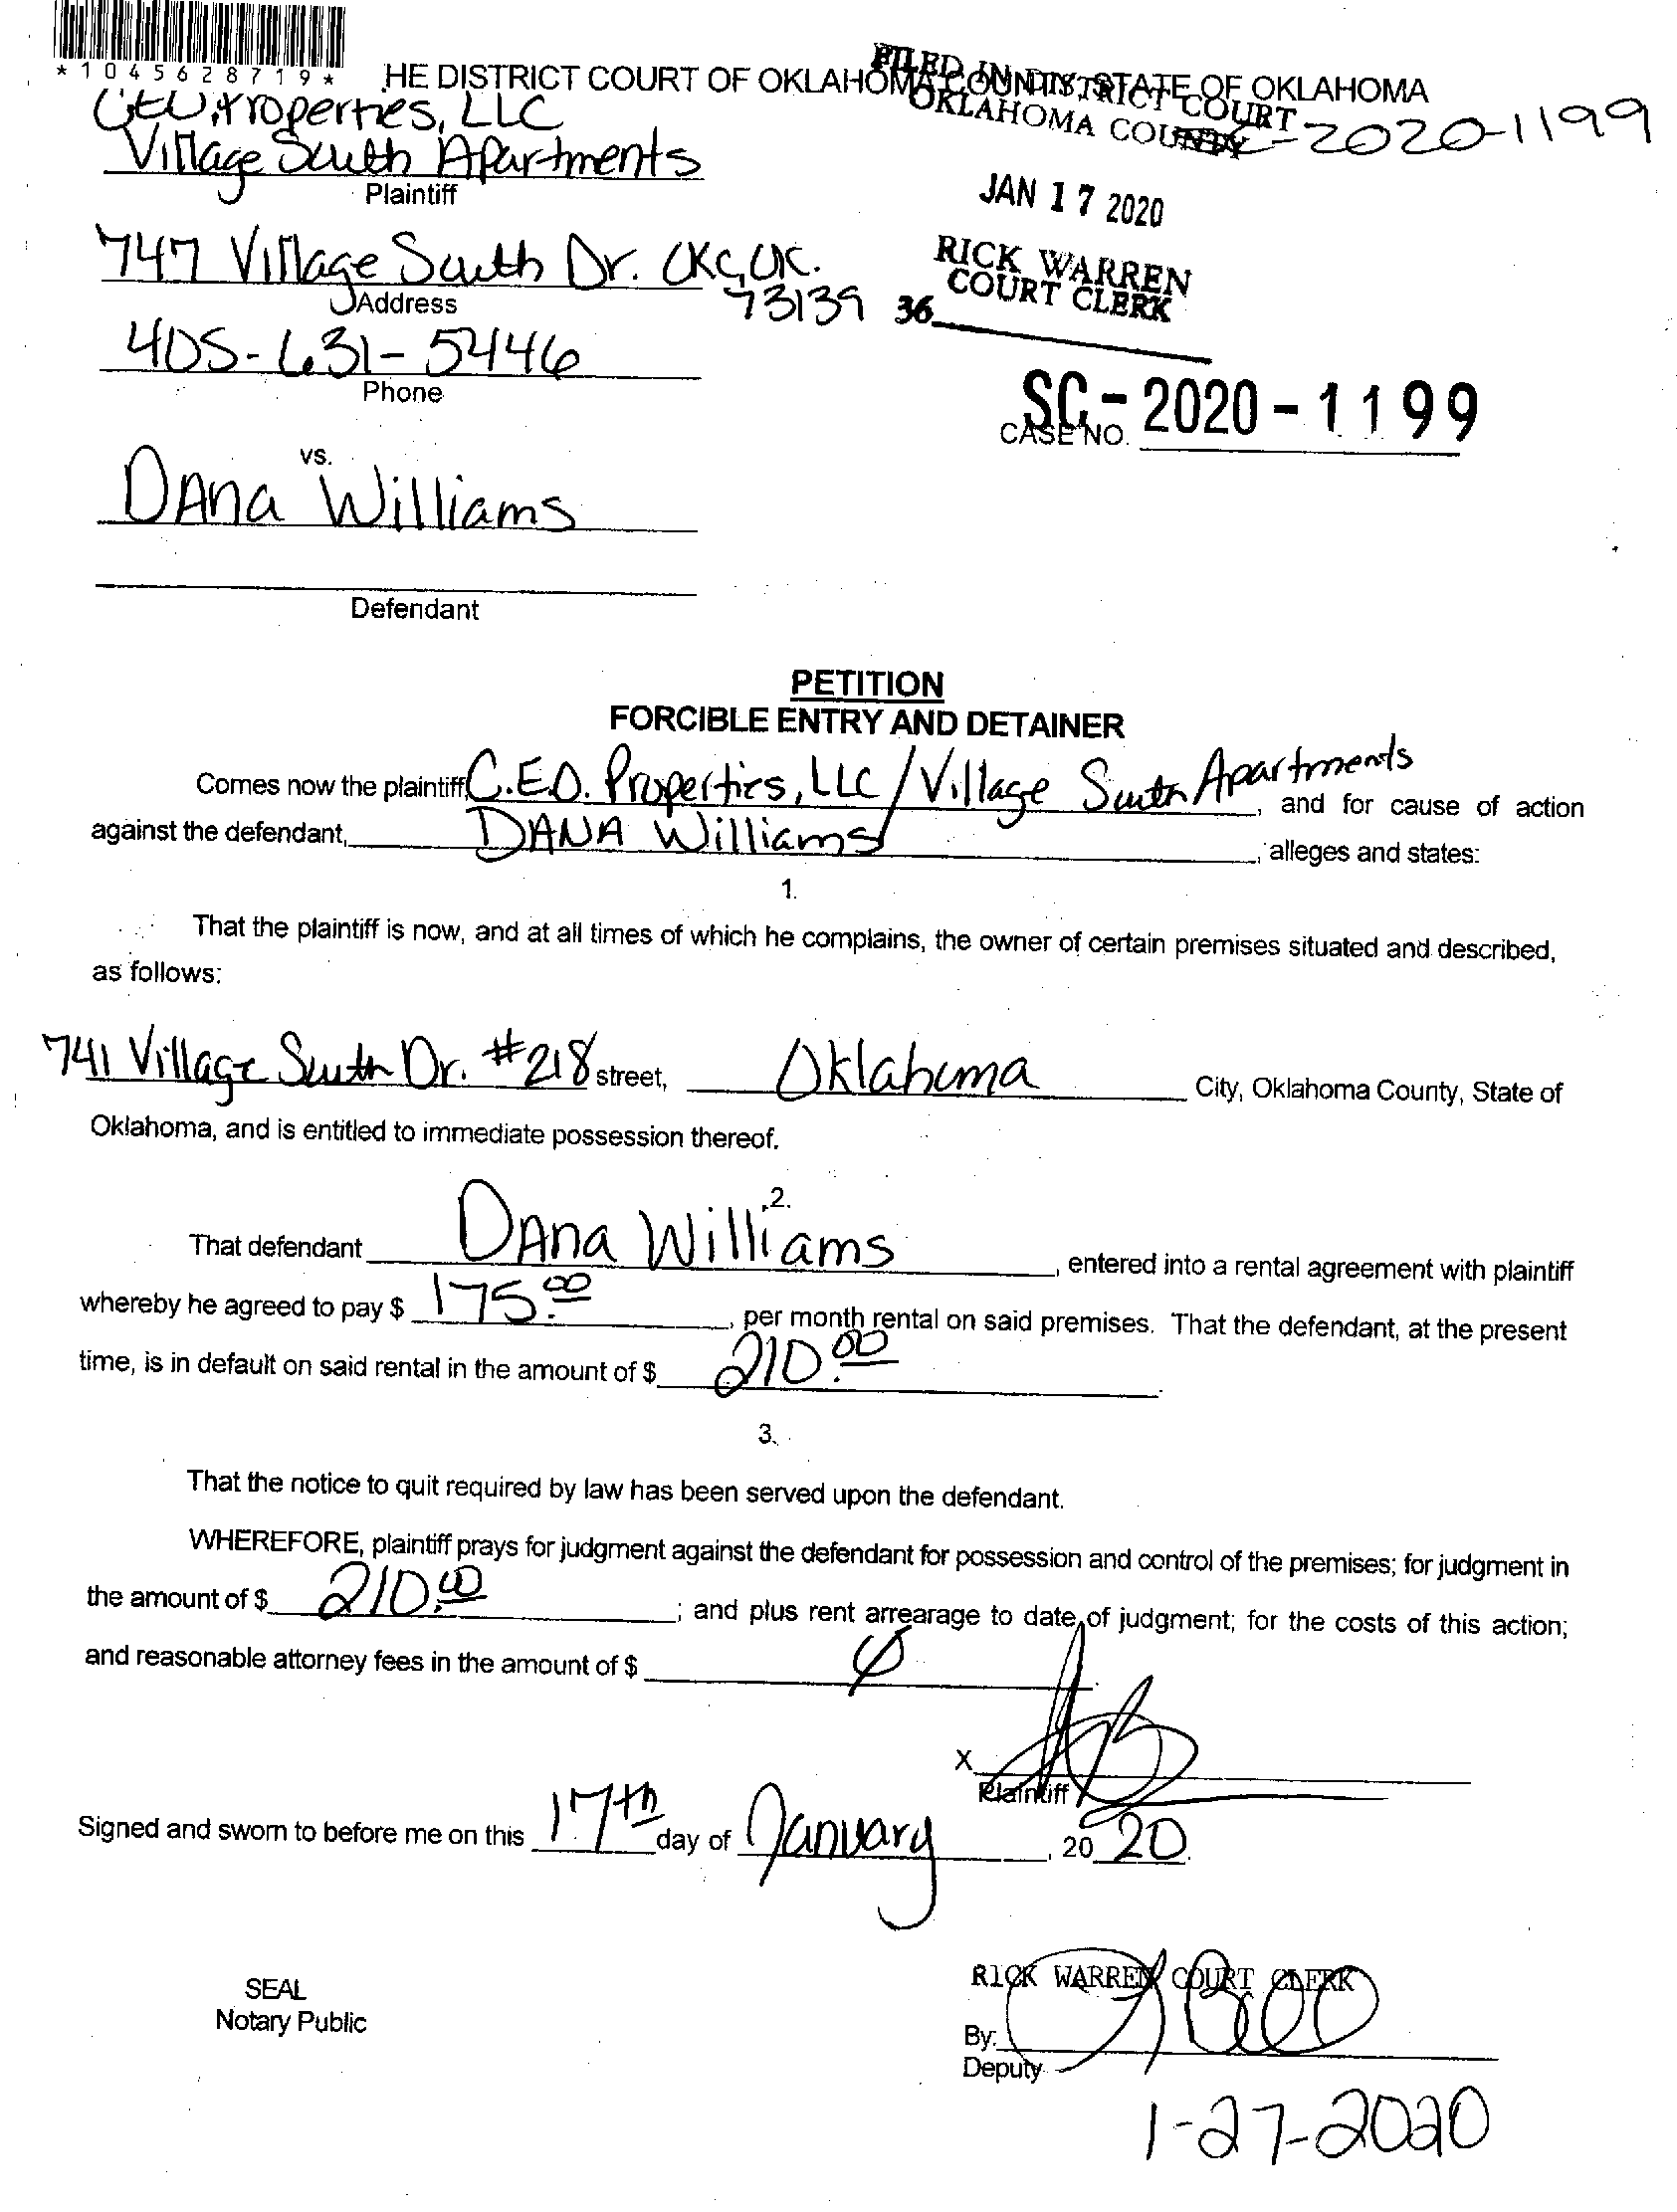 *1045628719*
HE DISTRICT COURT OF OKLAHOMA COUNTY, STATE OF OKLAHOMA
FILED IN DISTRICT COURT
OKLAHOMA COUNTY
-2020-1199
Properties, LLC
Village South Apartments
Plaintiff
JAN 17 2020
747 Village South Dr. OKC, OK.
73139
Address
RICK WARREN
COURT CLERK
36
405-631-5446
Phone
SC-2020-1199
CASE NO.
vs.
DAna Williams
Defendant
PETITION
FORCIBLE ENTRY AND DETAINER
Comes now the plaintiff, C.E.O. Properties, LLC / Village South Apartments, and for cause of action
against the defendant, DANA Williams, alleges and states:
1.
That the plaintiff is now, and at all times of which he complains, the owner of certain premises situated and described,
as follows:
741 Village South Dr. #218 street, Oklahoma City, Oklahoma County, State of
Oklahoma, and is entitled to immediate possession thereof.
2.
That defendant DAna Williams, entered into a rental agreement with plaintiff
whereby he agreed to pay $ 175.00, per month rental on said premises. That the defendant, at the present
time, is in default on said rental in the amount of $ 210.00.
3.
That the notice to quit required by law has been served upon the defendant.
WHEREFORE, plaintiff prays for judgment against the defendant for possession and control of the premises; for judgment in
the amount of $ 210.00; and plus rent arrearage to date of judgment; for the costs of this action;
and reasonable attorney fees in the amount of $ φ.
X
Plaintiff
Signed and sworn to before me on this 17th day of January, 2020.
SEAL
Notary Public
RICK WARREN COURT CLERK
By:
Deputy
1-27-2020